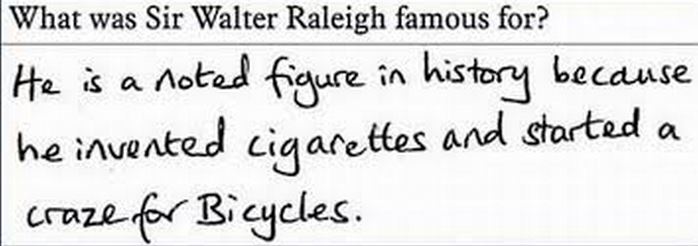 What was Sir Walter Raleigh famous for?
He is a noted figure in history because
he invented cigarettes and started a
craze for Bicycles.